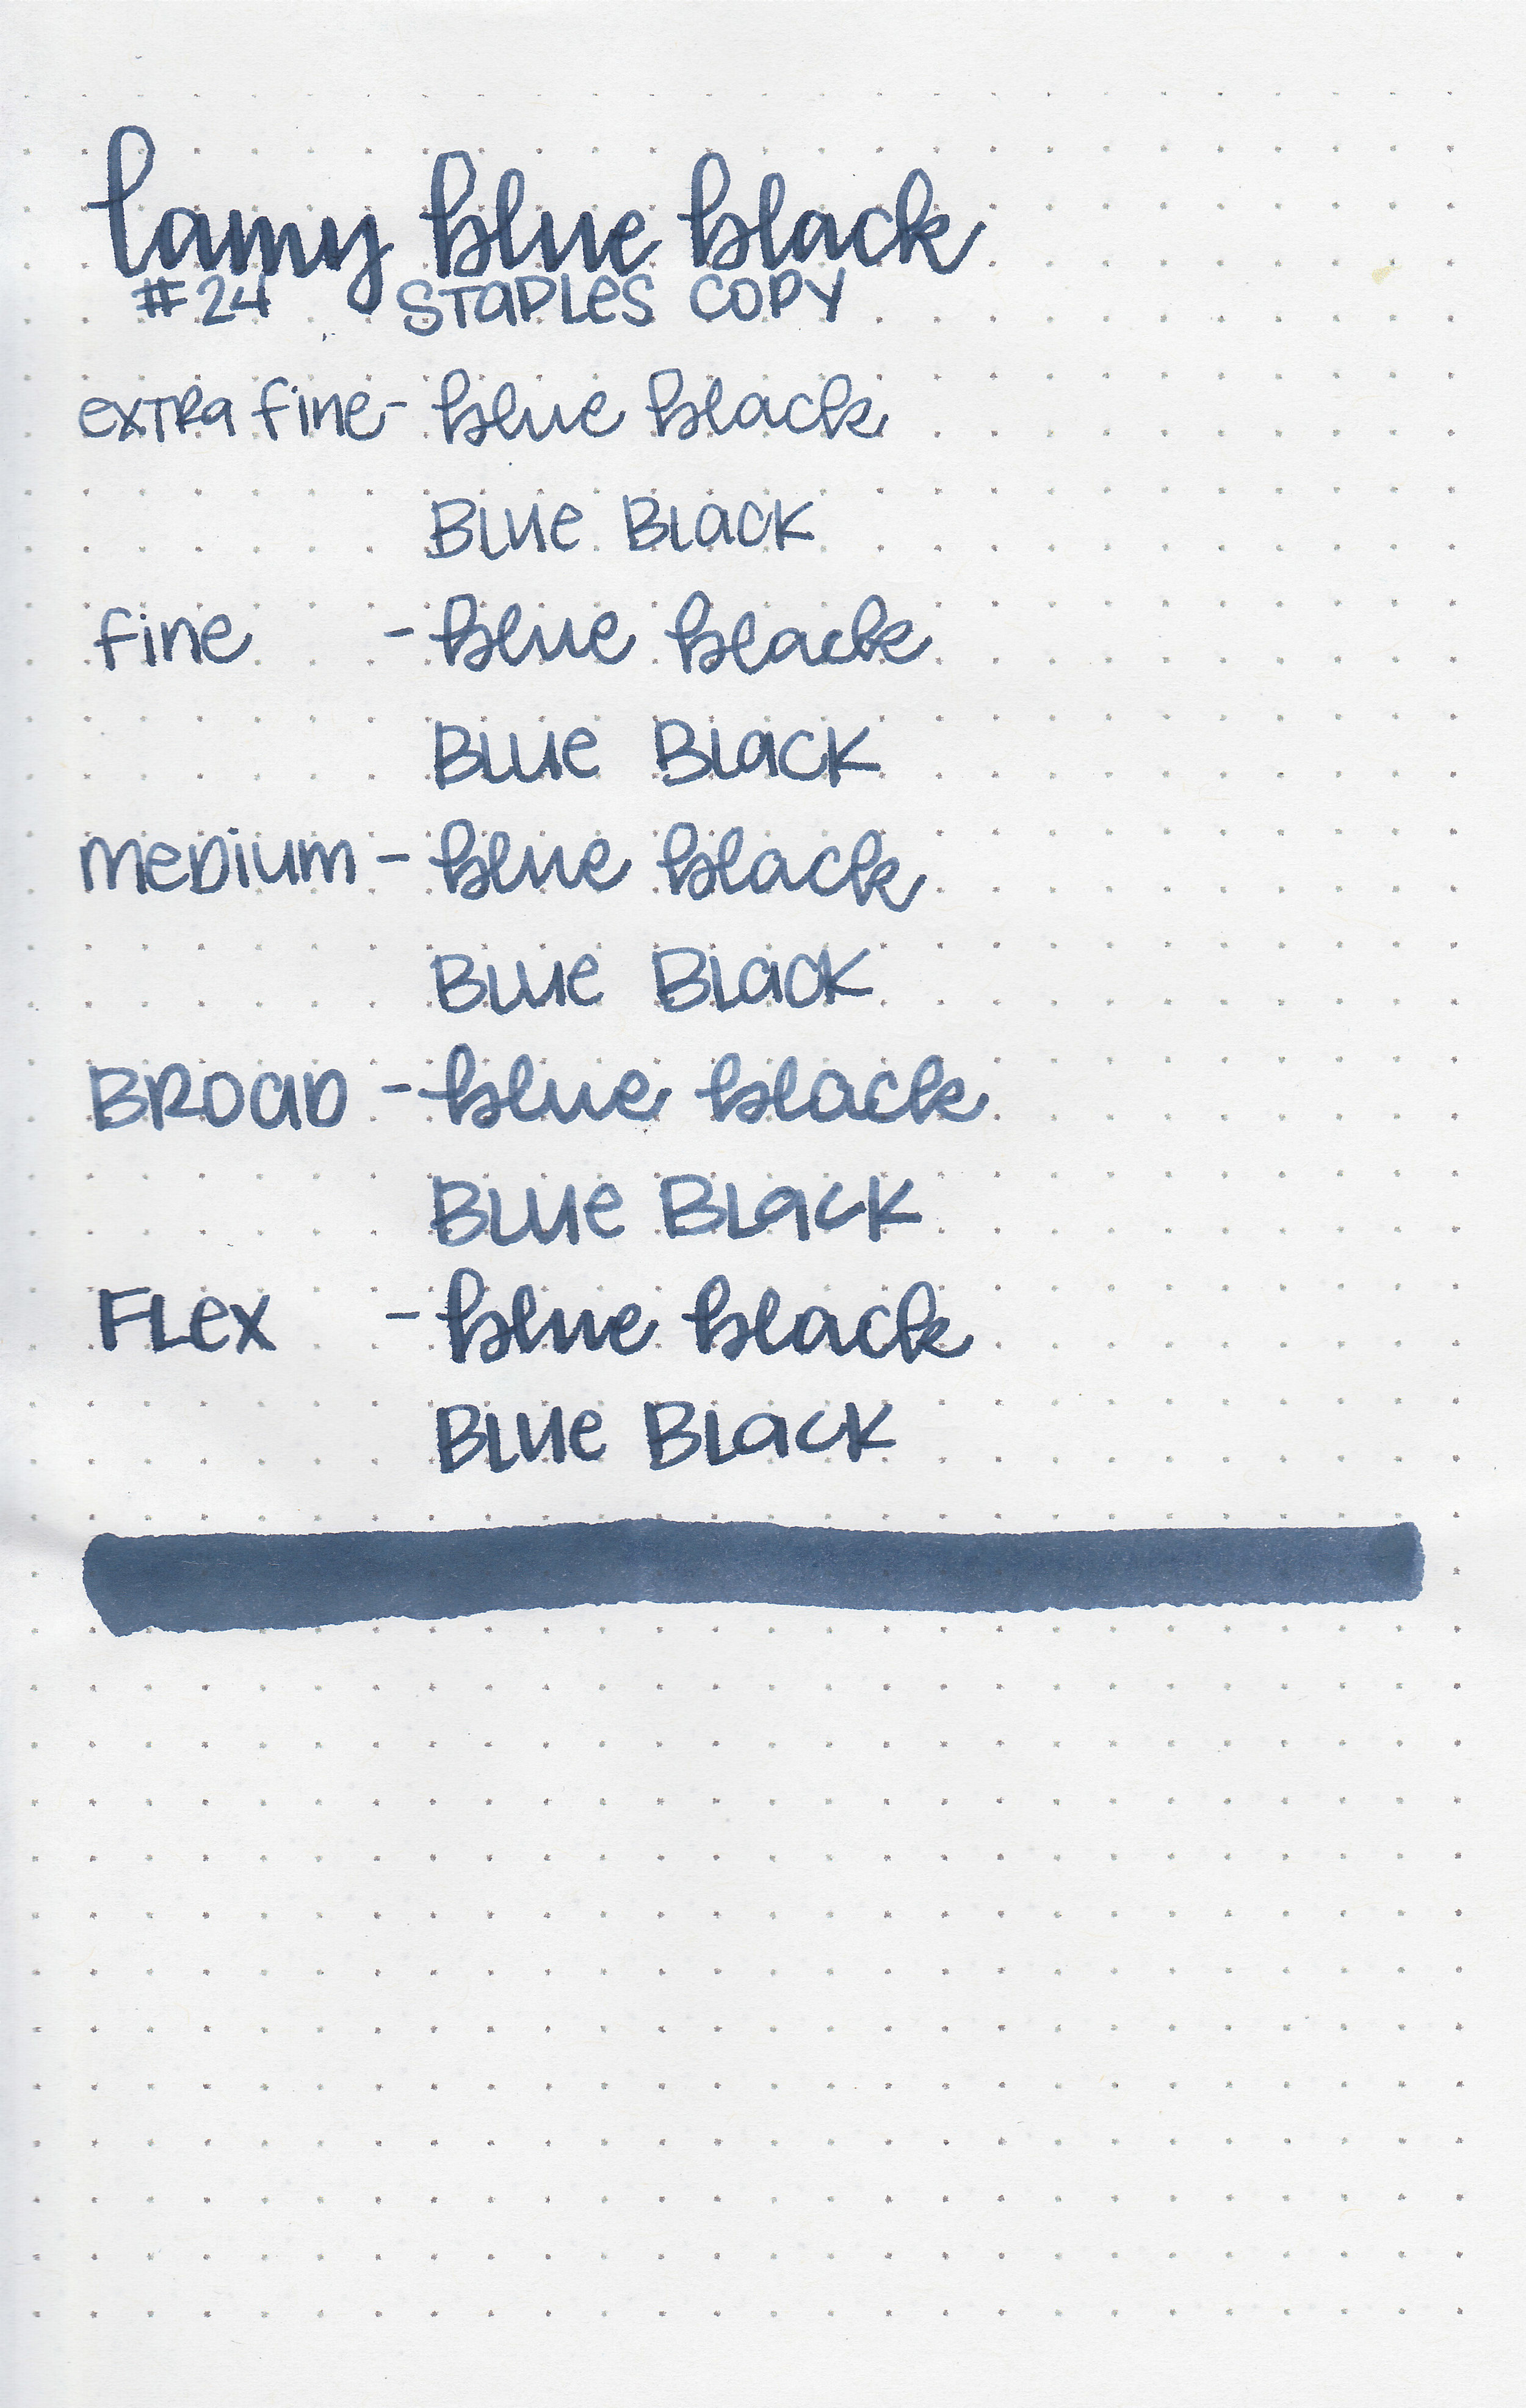 lamy blue black
#24 STAPLes COPY
exTRa fine - blue black
BLue BLack
fine - blue black
BLue BLack
meDium - blue black
BLue BLack
BROaD - blue black
BLue BLack
FLex - blue black
BLue BLack